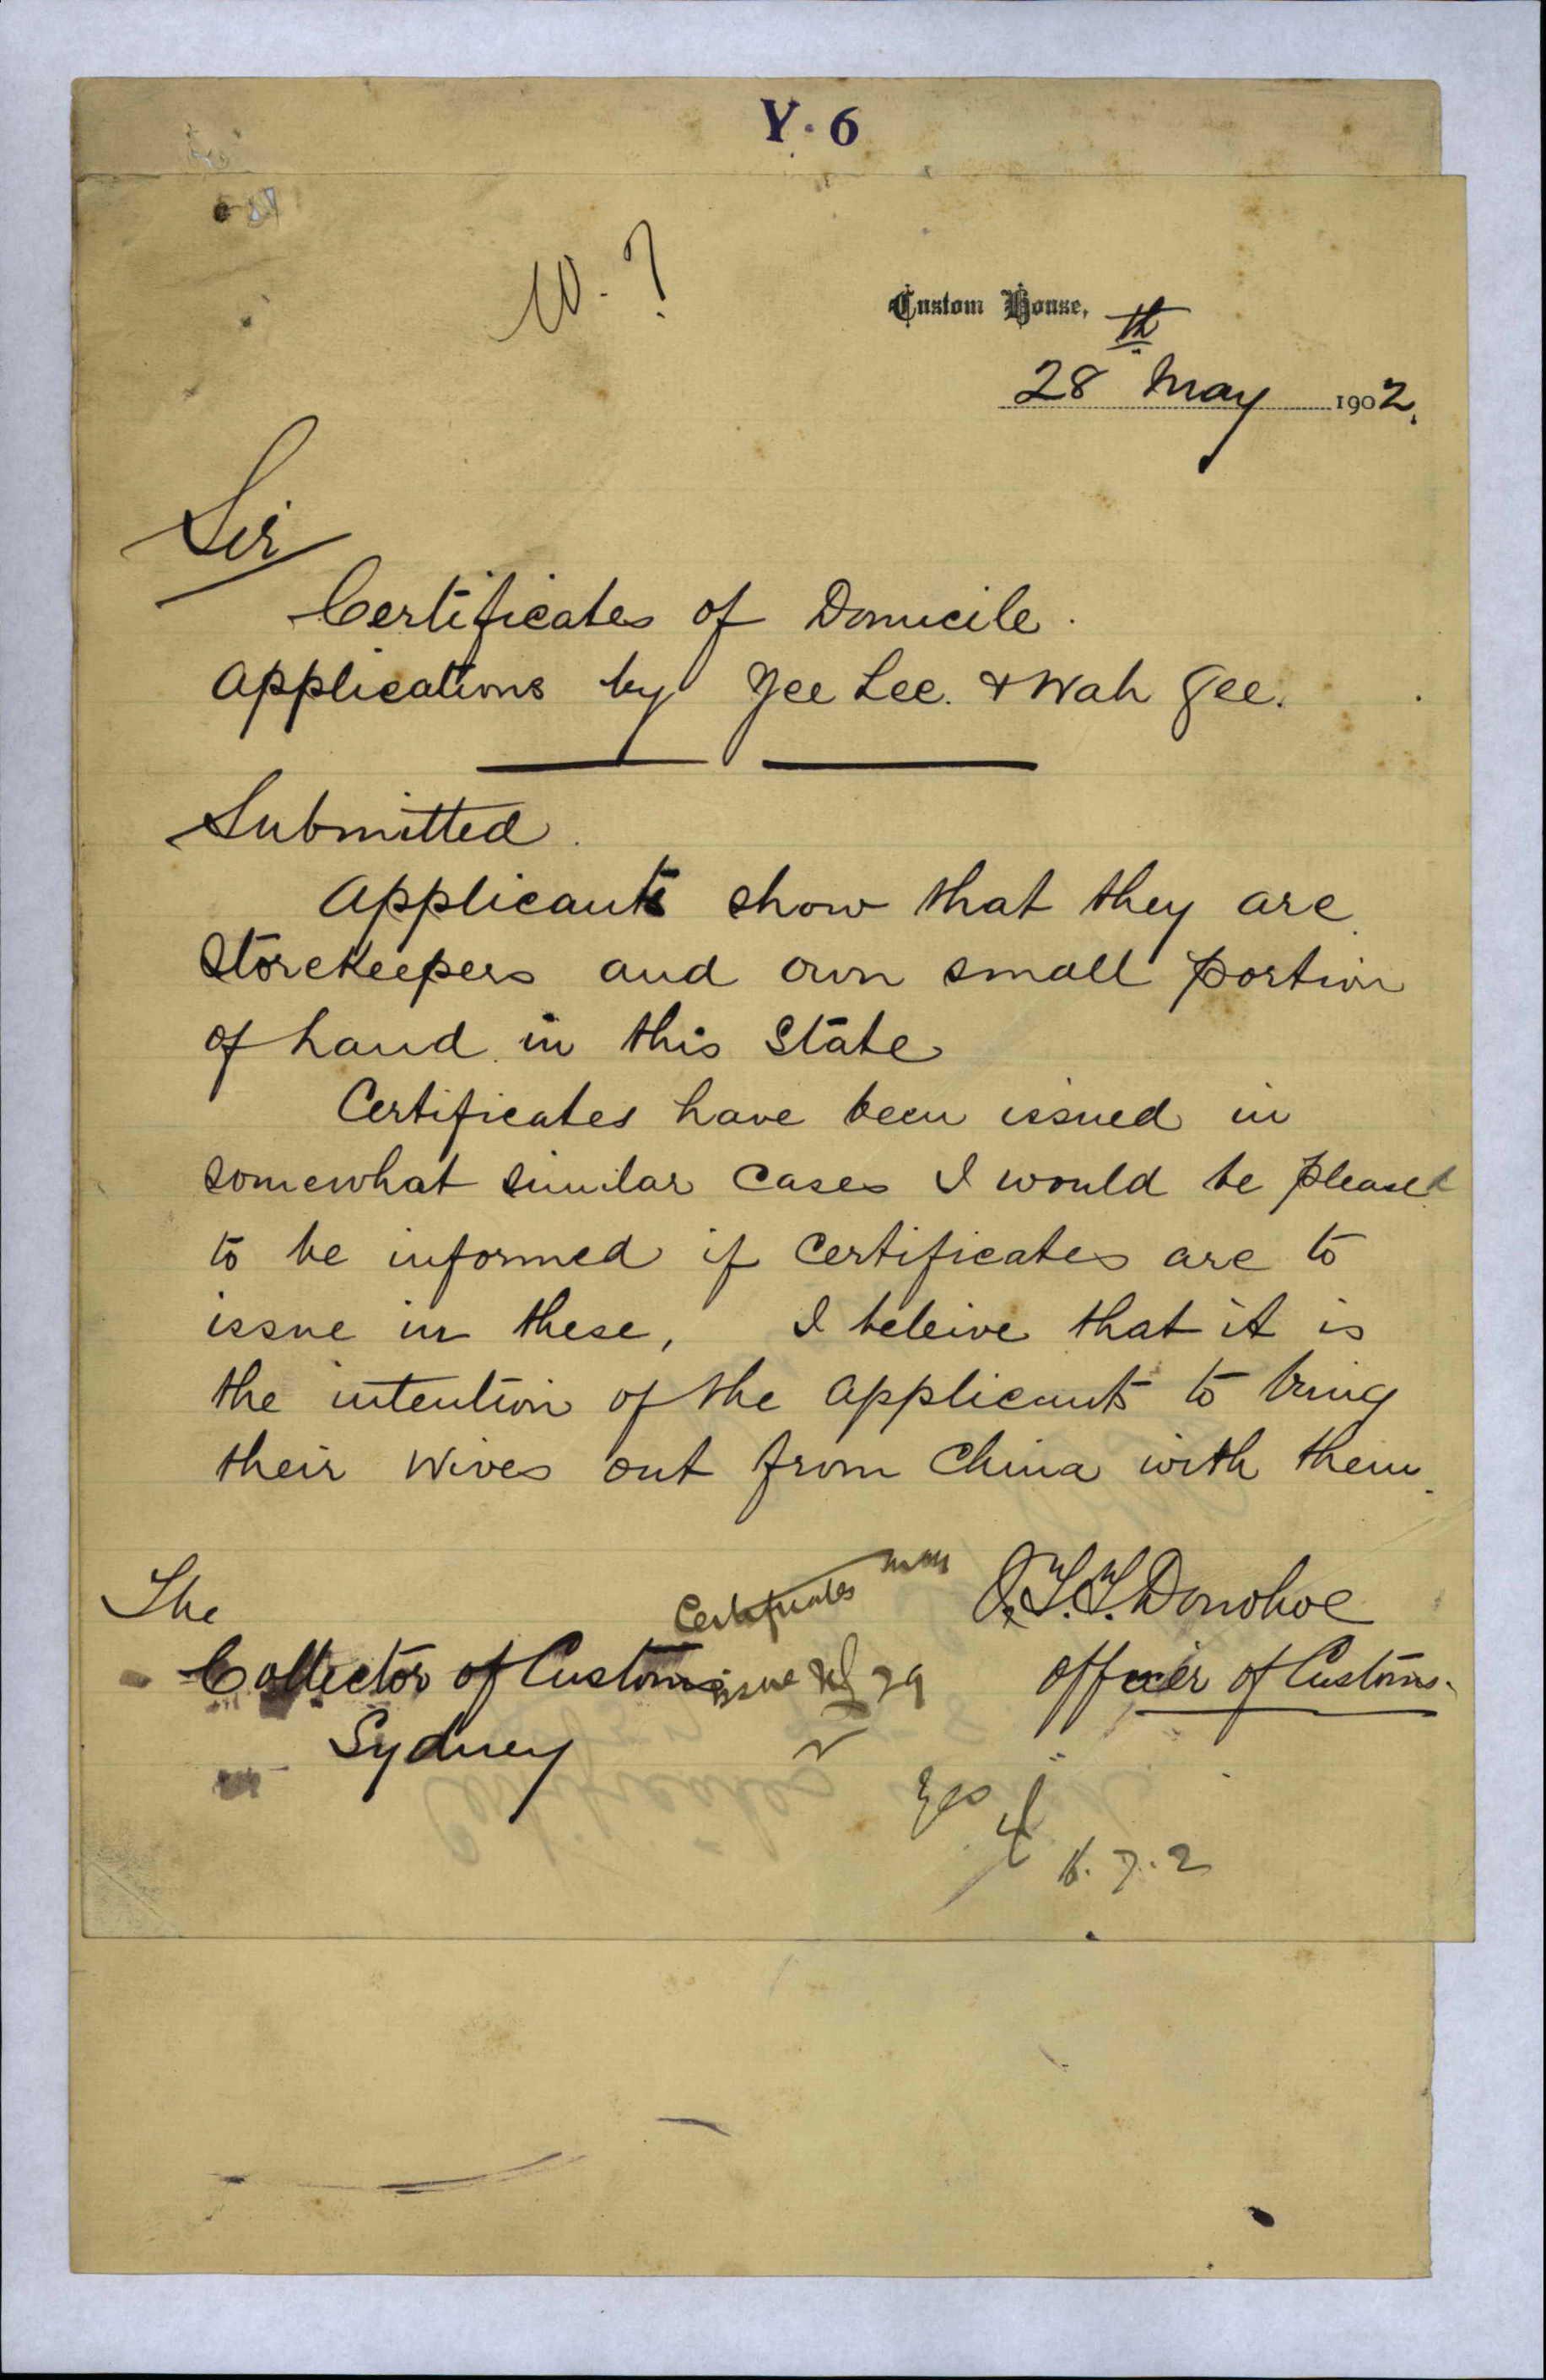 Y. 6
W. ?
Custom House,
28th May 1902.
Sir
Certificates of Domicile.
Applications by Yee Lee. & Wah Gee.
Submitted.
Applicants show that they are
Storekeepers and own small portion
of Land in this State
Certificates have been issued in
somewhat similar cases I would be pleased
to be informed if Certificates are to
issue in these, I beleive that it is
the intention of the applicants to bring
their wives out from China with them.
The
Collector of Customs
Sydney
Donohoe
Officer of Customs.
Certificates may
issue
Yes
16.7.2